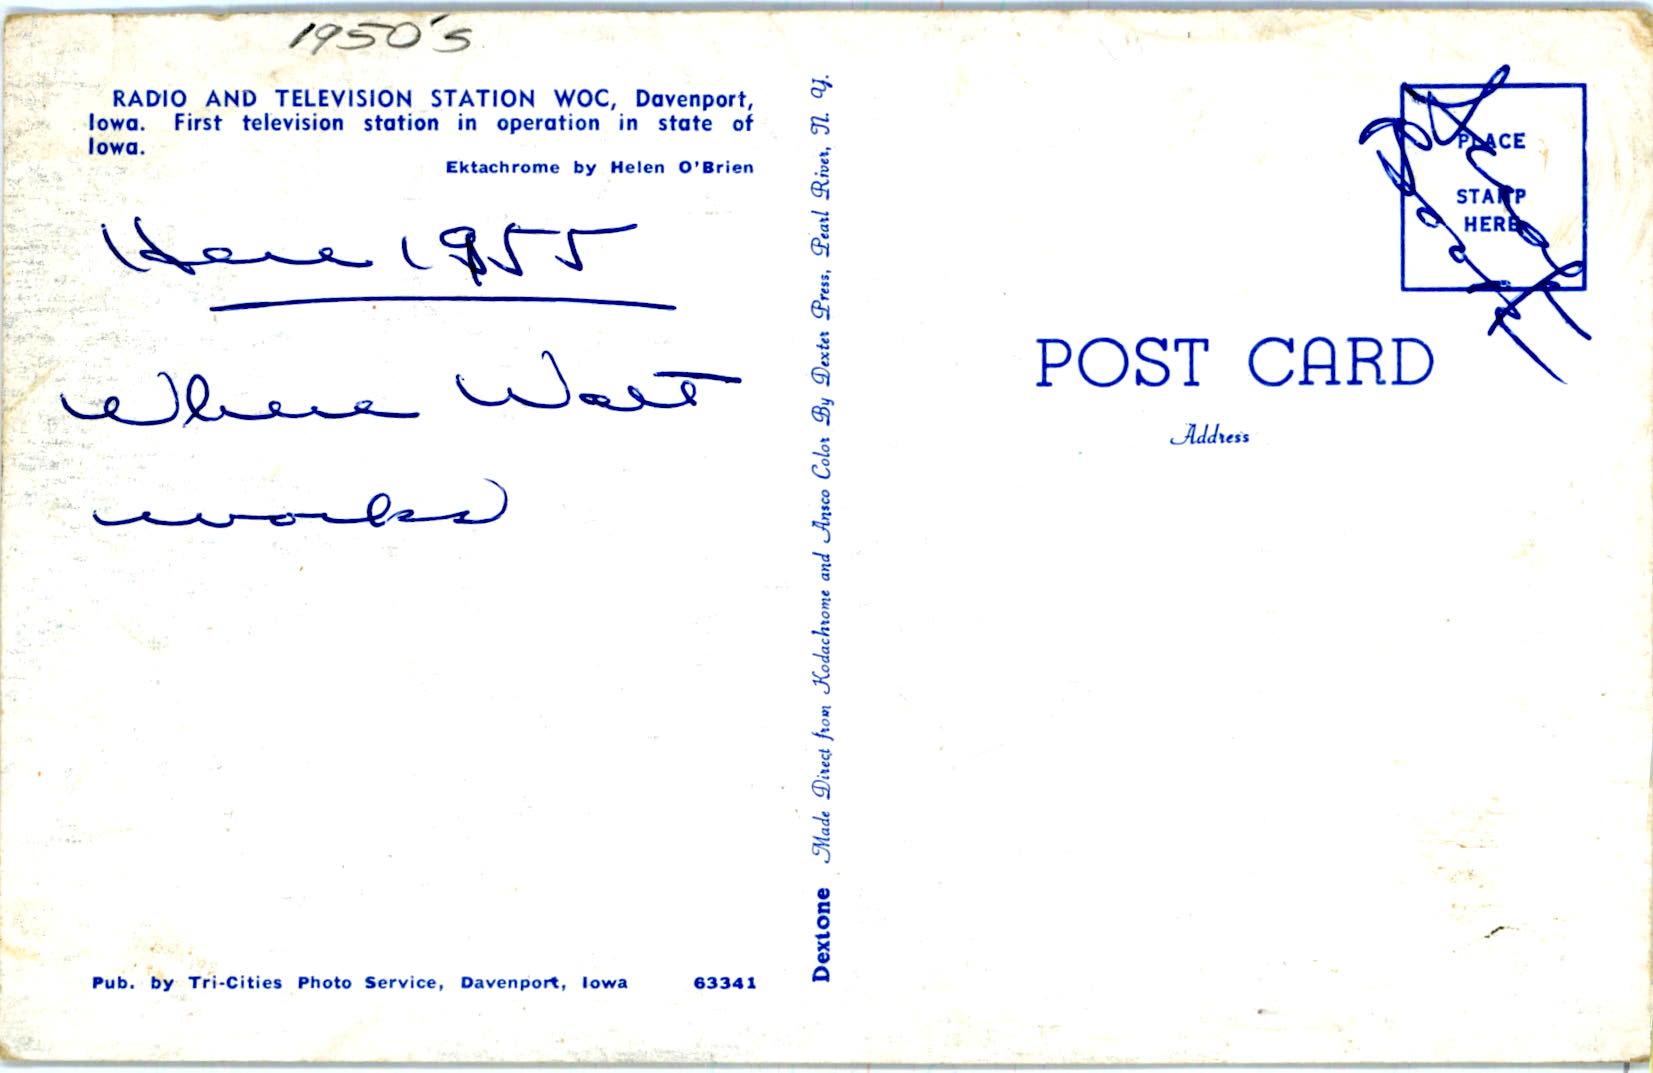 1950's
RADIO AND TELEVISION STATION WOC, Davenport,
Iowa. First television station in operation in state of
Iowa.
Ektachrome by Helen O'Brien
Here 1955
Where Walt
works
Pub. by Tri-Cities Photo Service, Davenport, Iowa 63341
Dextone Made Direct from Kodachrome and Ansco Color By Dexter Press, Pearl River, N. Y.
PLACE
STAMP
HERE
POST CARD
Address